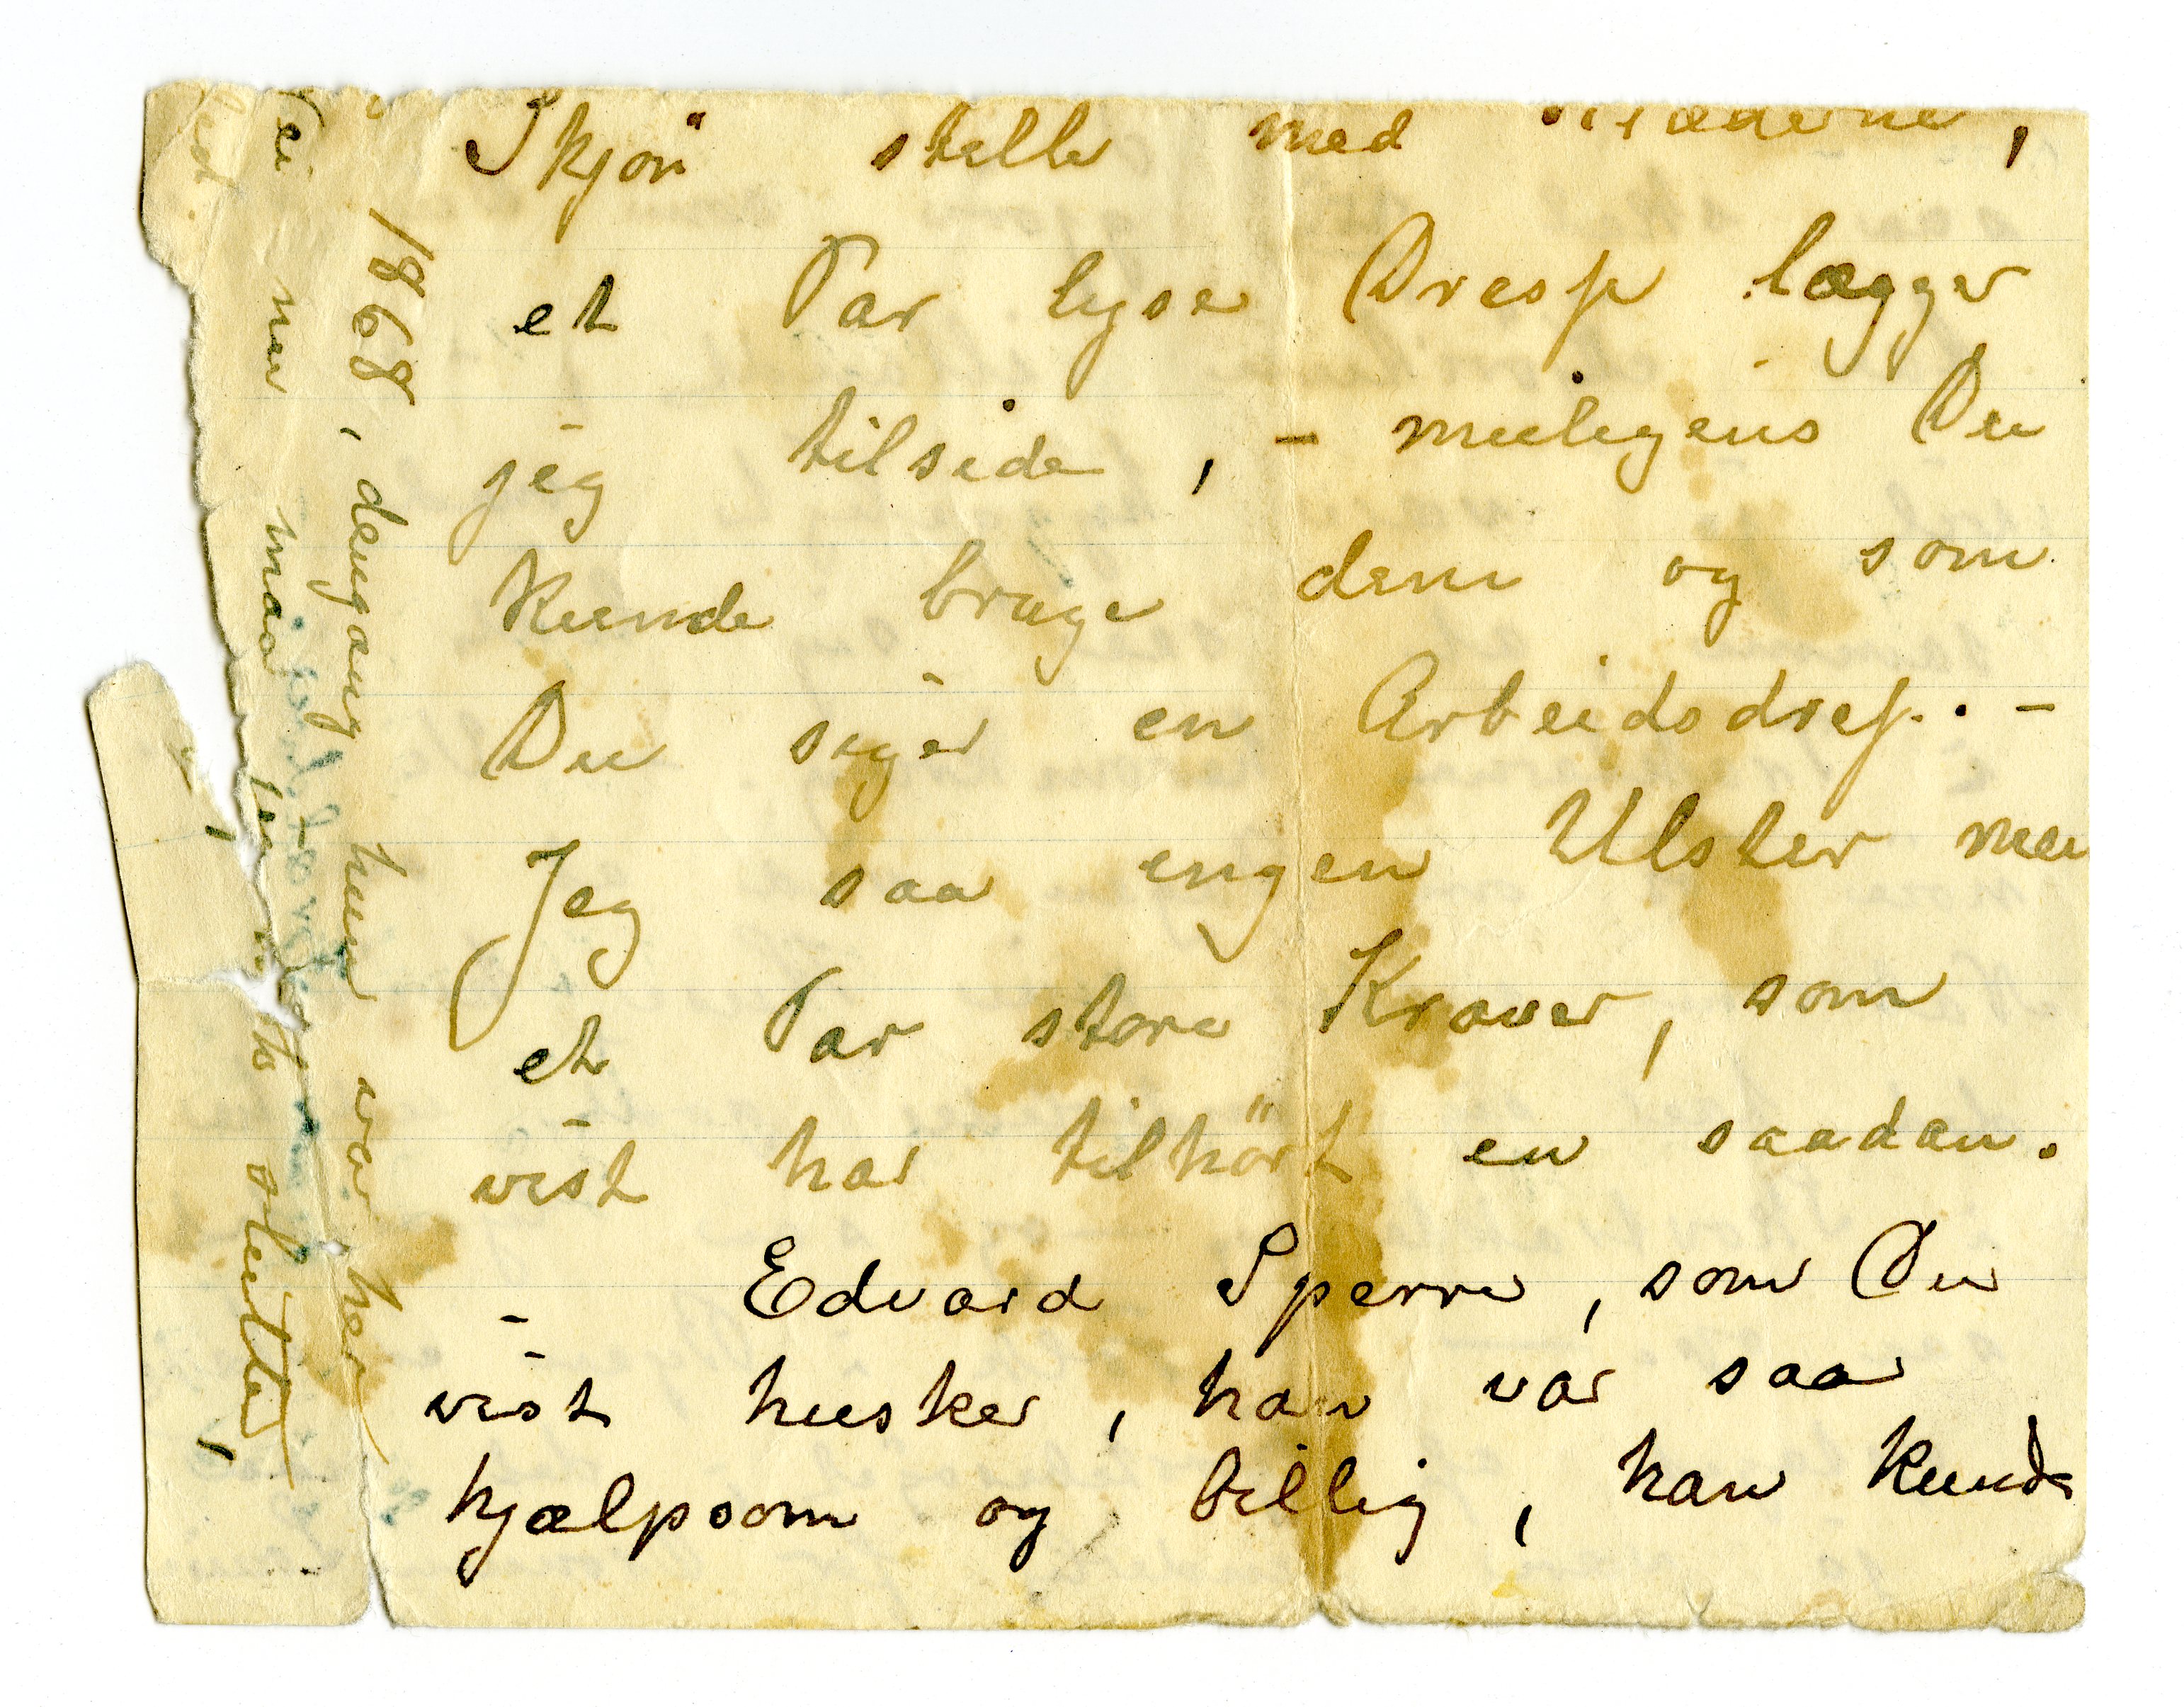 Skjön stelle med Klæderne,
et Par lyse Dresse lægger
jeg tilside, – muligens Du
kunde bruge dem og som
Du siger en Arbeidsdres. –
Jeg saa ingen Ulster men
et Par store Kraver, som
vist har tilhört en saadan.
– Edvard Sperre, som Du
vist husker, han var saa
hjælpsom og billig, han kunde
1868, dengang hun var her
nu maa jeg slutte,